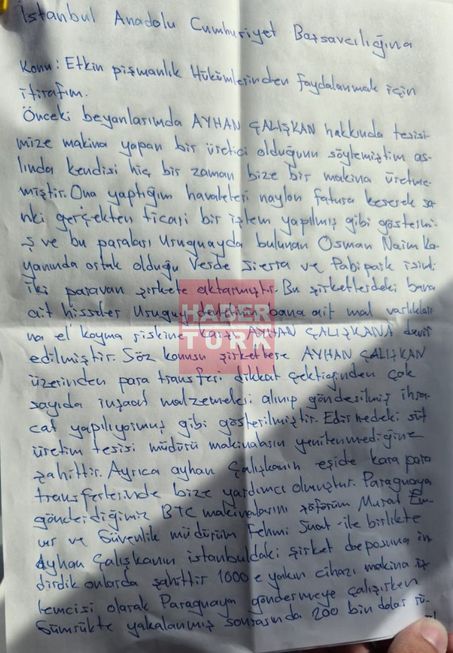 İstanbul Anadolu Cumhuriyet Başsavcılığına
Konu: Etkin pişmanlık Hükümlerinden faydalanmak için
itirafım.
Önceki beyanlarımda AYHAN ÇALIŞKAN hakkında tesisi-
mize makina yapan bir üretici olduğunu söylemiştim as-
lında kendisi hiç bir zaman bize bir makina üretme-
miştir. Ona yaptığım havaleleri naylon fatura keserek sa-
nki gerçekten ticari bir işlem yapılmış gibi göstermi-
ş ve bu paraları Uruguayda bulunan Osman Naim Ka
yanında ortak olduğu Verde Sierra ve isimli
iki paravan şirkete aktarmıştır. Bu şirketlerdeki bana
ait hisseler Uruguay bana ait mal varlıkları-
na el koyma riskine karşı AYHAN ÇALIŞKANA devir
edilmiştir. Söz konusu şirketlere AYHAN ÇALIŞKAN
üzerinden para transferi dikkat çektiğinden çok
sayıda inşaat malzemeleri alınıp gönderilmiş ihra-
cat yapılıyormuş gibi gösterilmiştir. Edirnedeki süt
üretim tesisi müdürü makinaların yenilenmediğine
şahittir. Ayrıca ayhan Çalışkanın eşide kara para
transferlerinde bize yardımcı olmuştur. Paraguaya
gönderdiğimiz BTC makinalarını şoförüm Murat
ve Güvenlik müdürüm Fehmi Suat ile birlikte
Ayhan Çalışkanın istanbuldaki şirket deposuna in
dirdik onlarda şahittir 1000 e yakın cihazı makina
temcisi olarak Paraguaya göndermeye çalışırken
Gümrükte yakalanmış sonrasında 200 bin dolar rü-
HABER
TÜRK